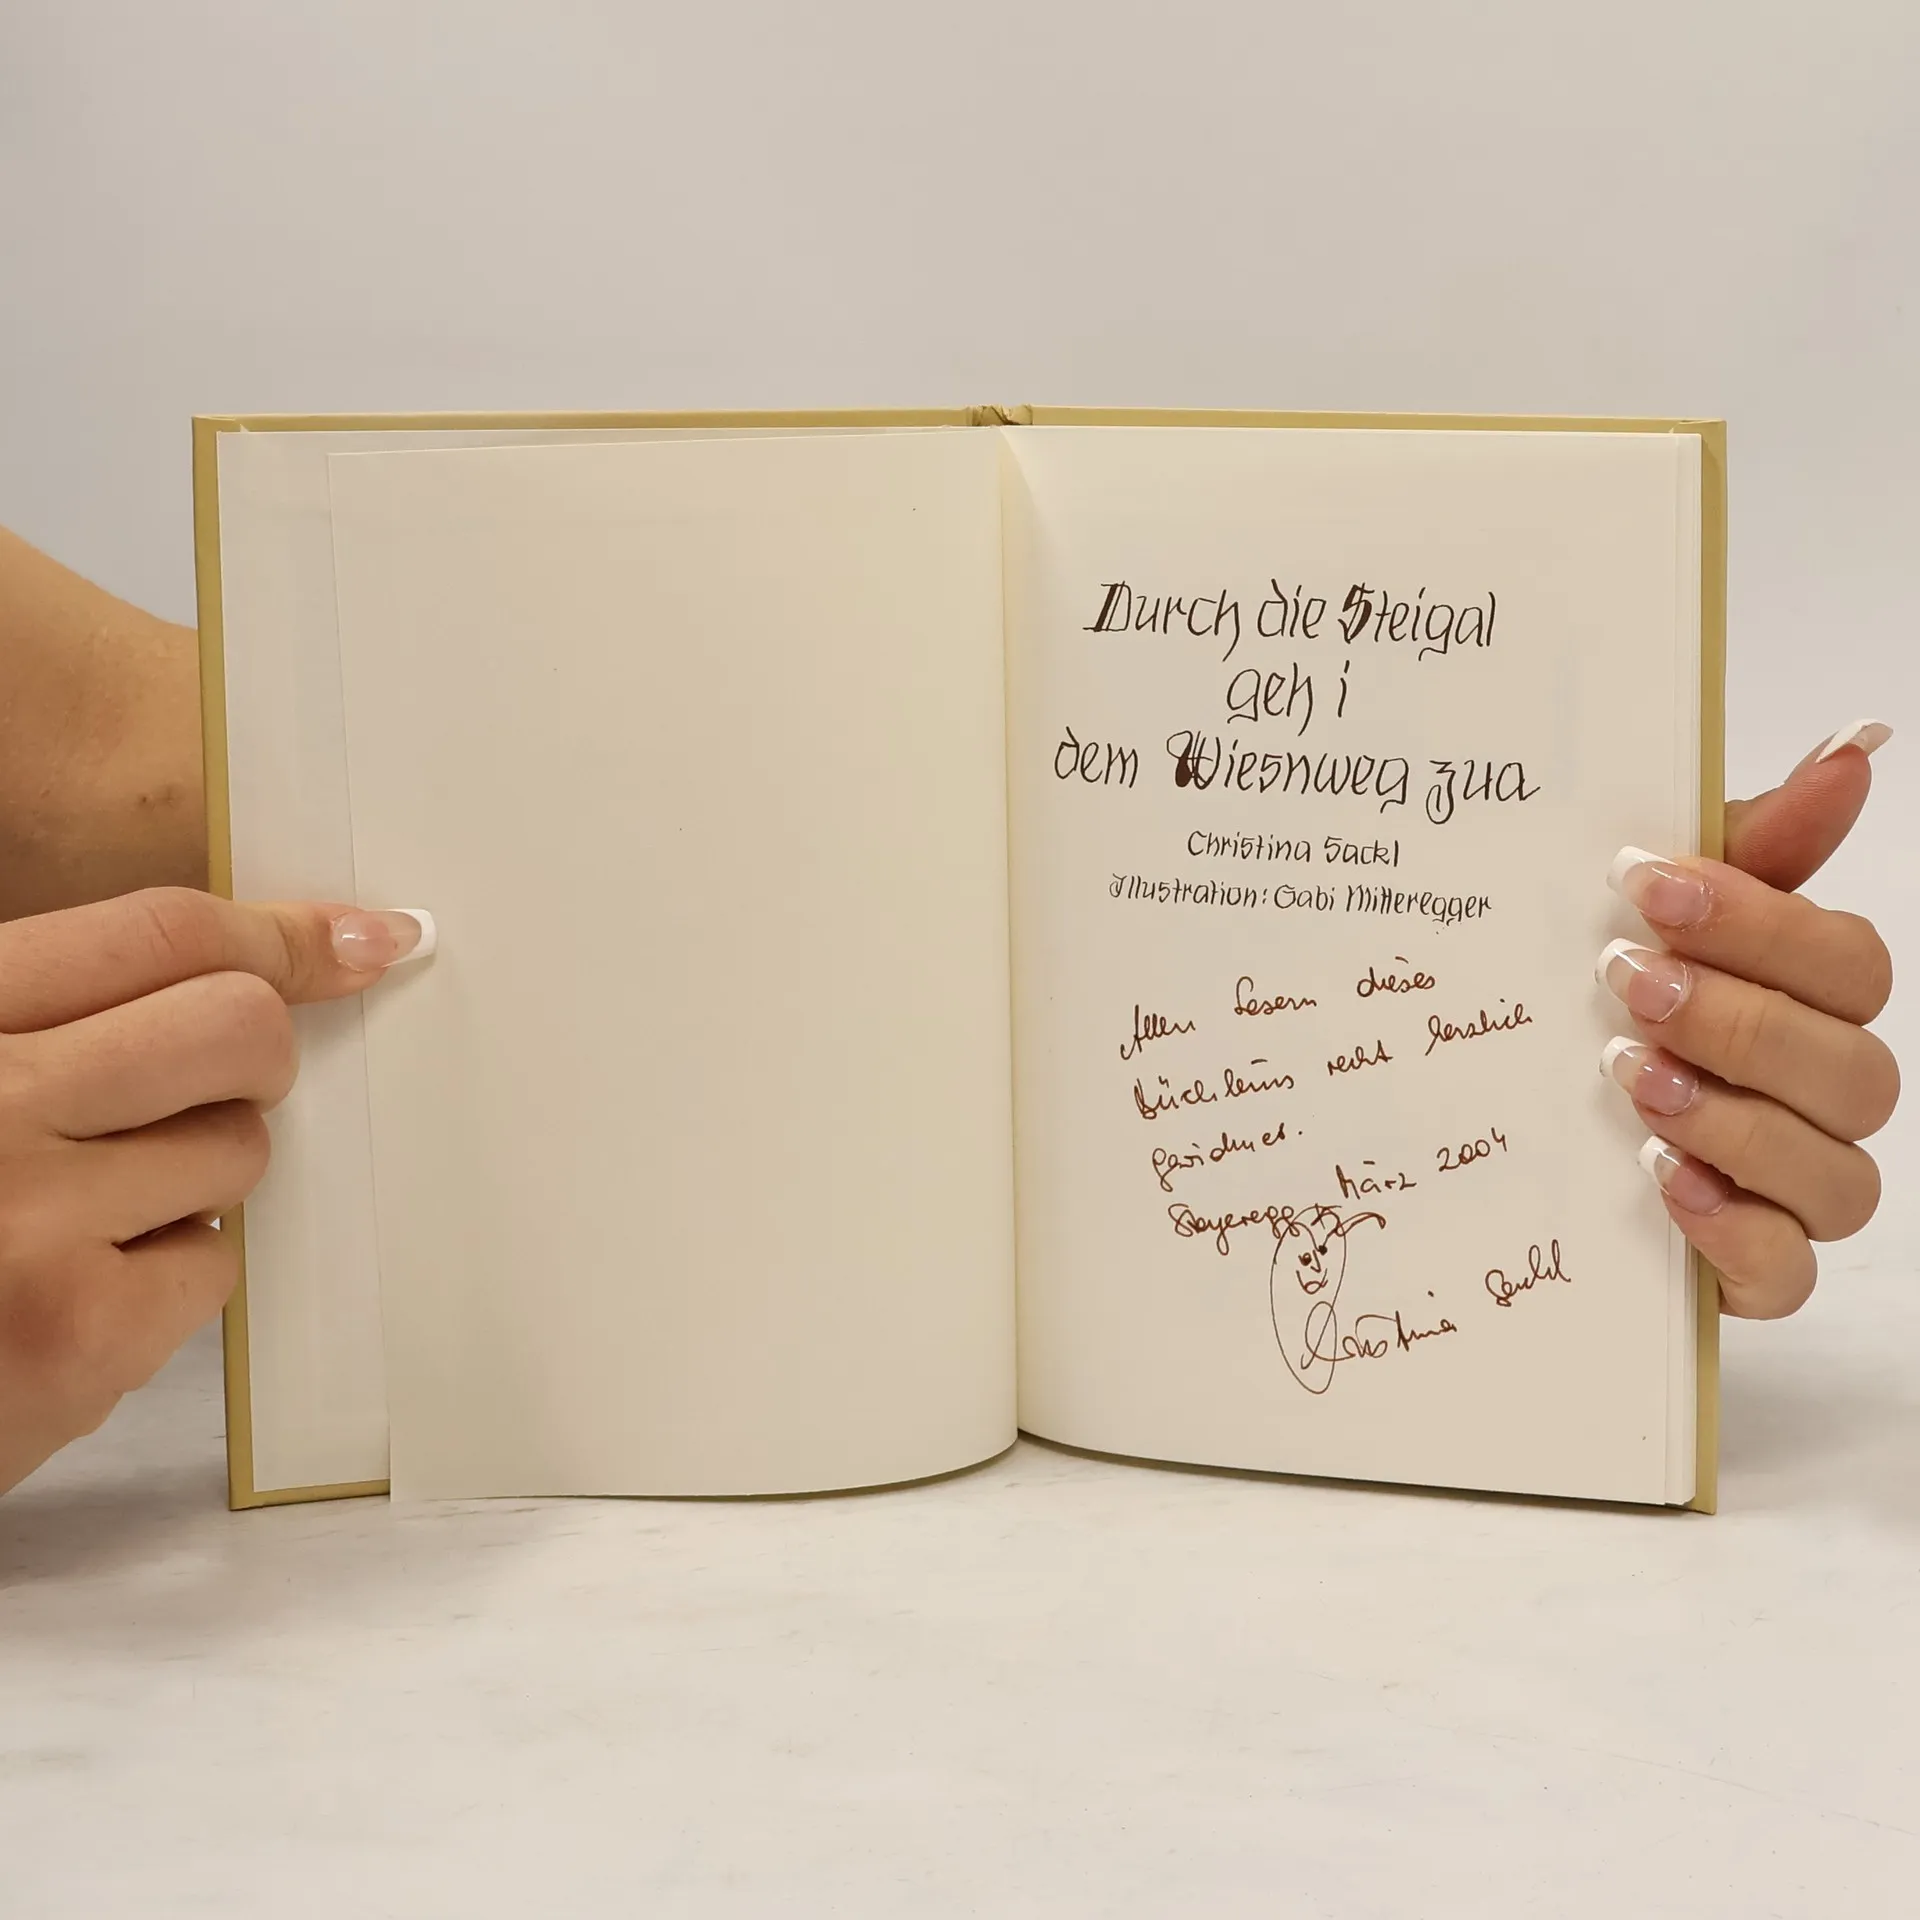 Durch die Steigal
geh i
dem Wiesnweg zua
Christina Sackl
Illustration: Gabi Mitteregger
Allen Lesern dieses
Büchleins recht herzlich
gewidmet.
Steyeregg, März 2004
Christina Sackl